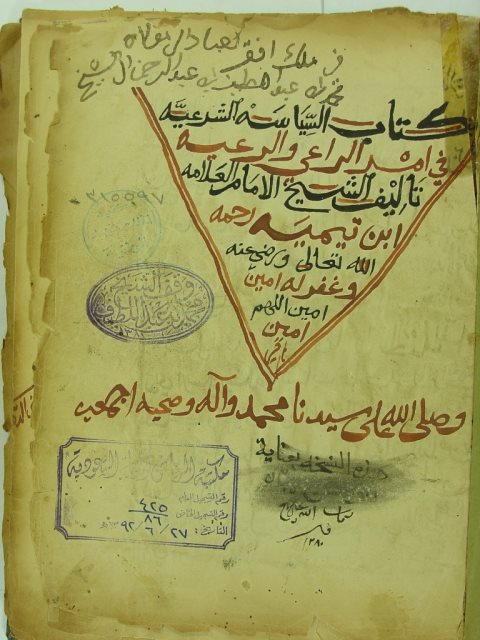 في ملك افقر العباد الى مولاه
محمد بن عبد اللطيف بن عبد الرحمن آل الشيخ
كتاب السياسة الشرعيه
في امر الراعي والرعيه
تاليف الشيخ الامام العلامه
ابن تيميه رحمه
الله تعالى ورضي عنه
وغفر له امين
امين اللهم
امين
وصلى الله على سيدنا محمد وآله وصحبه اجمعين
٣١٥٥٩٧
وقف الشيخ
محمد بن عبد اللطيف
مكتبة الرياض السعودية
رقم التسجيل العام ٤٢٥
رقم التسجيل الخاص ٨٦
التاريخ: ٢٧ / ٦ / ٩٢
هذه النسخة بغاية
١٣٨٠